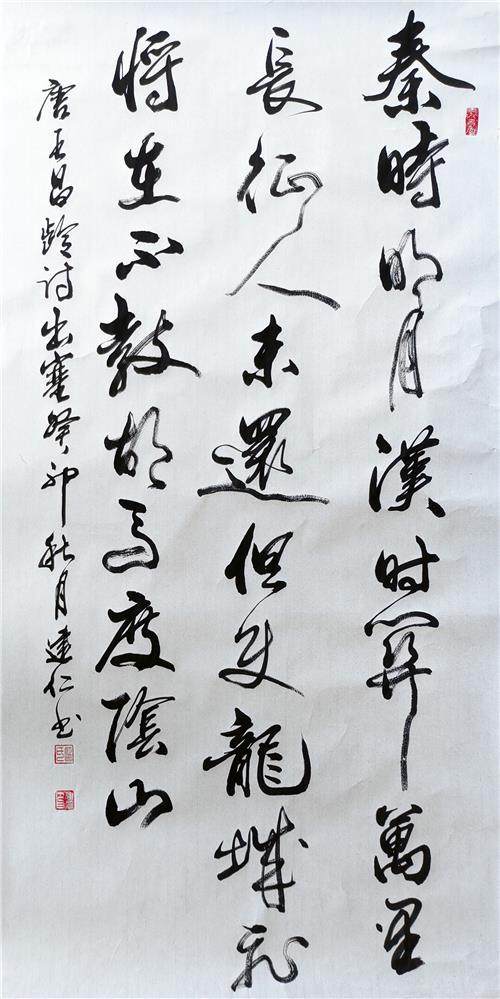 秦時明月漢时關萬里
長征人未還但使龍城飛
将在不教胡马度陰山
唐王昌齡诗出塞癸卯秋月建仁书